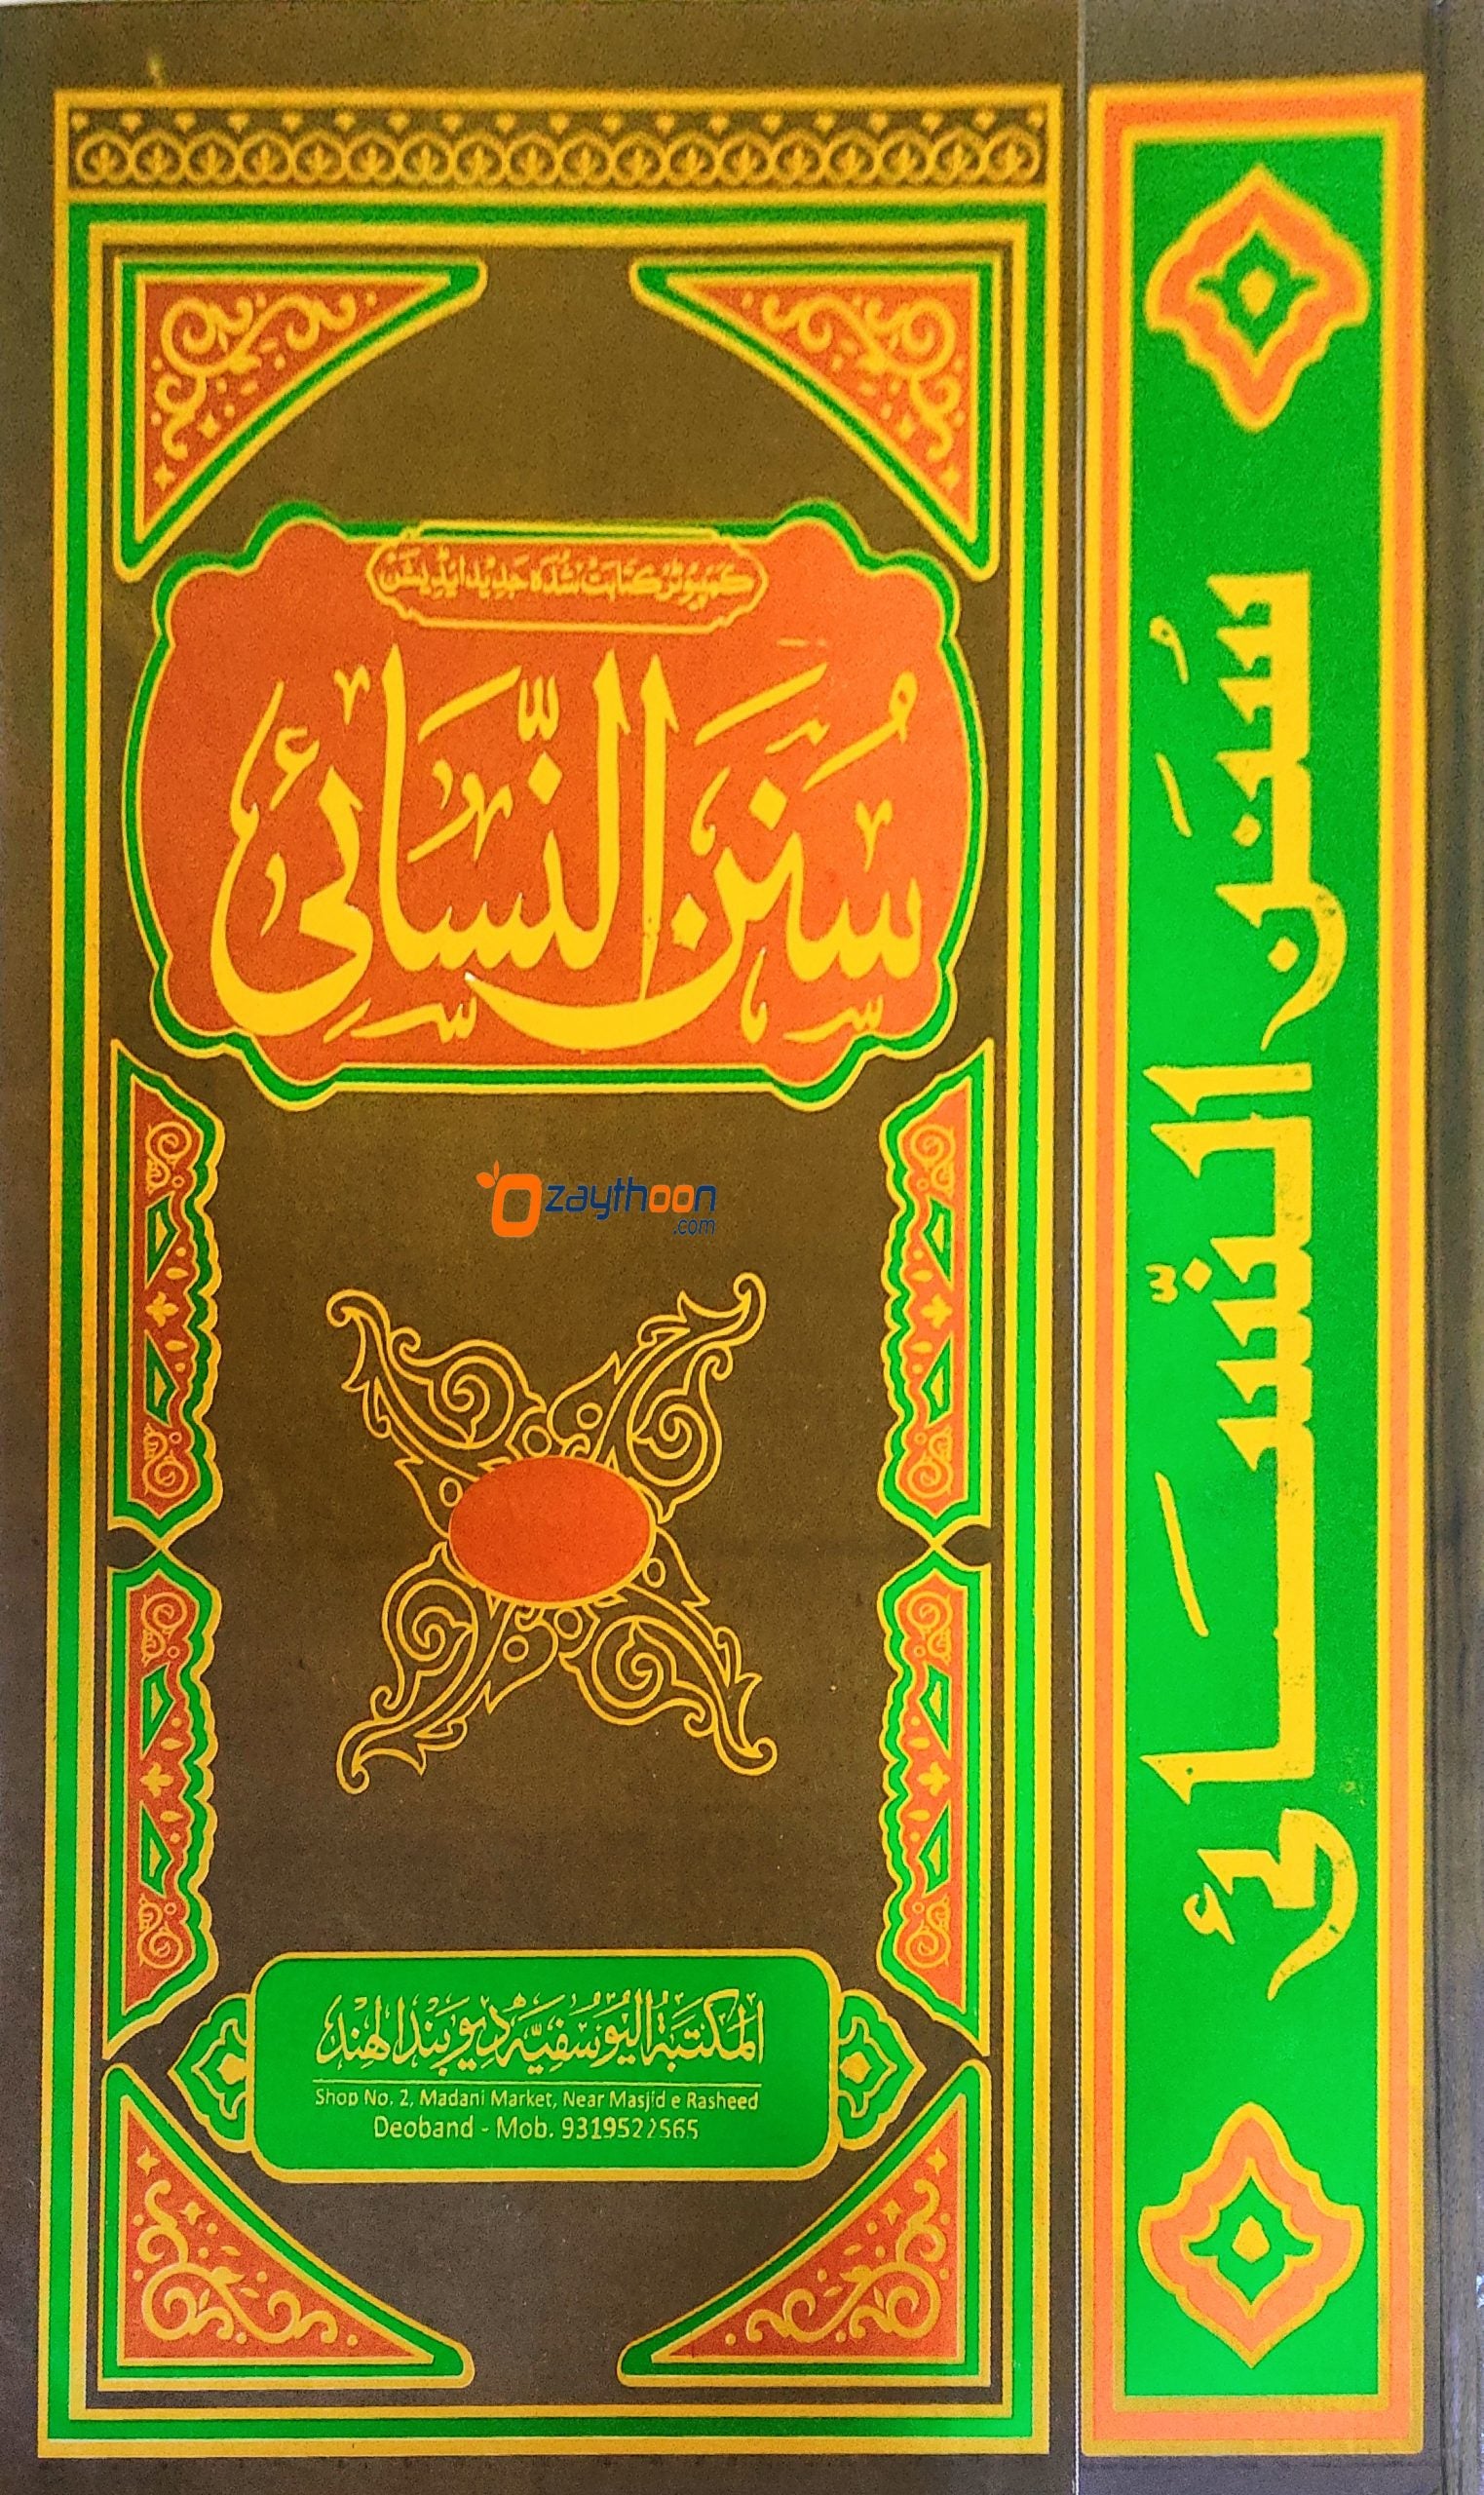 کمپیوٹر کتابت شدہ جدید ایڈیشن
سُنَنُ النَّسَائِي
zaythoon
.com
المكتبة اليوسفية ديوبند الهند
Shop No. 2, Madani Market, Near Masjid e Rasheed
Deoband - Mob. 9319522565
سُنَن النّسَائي